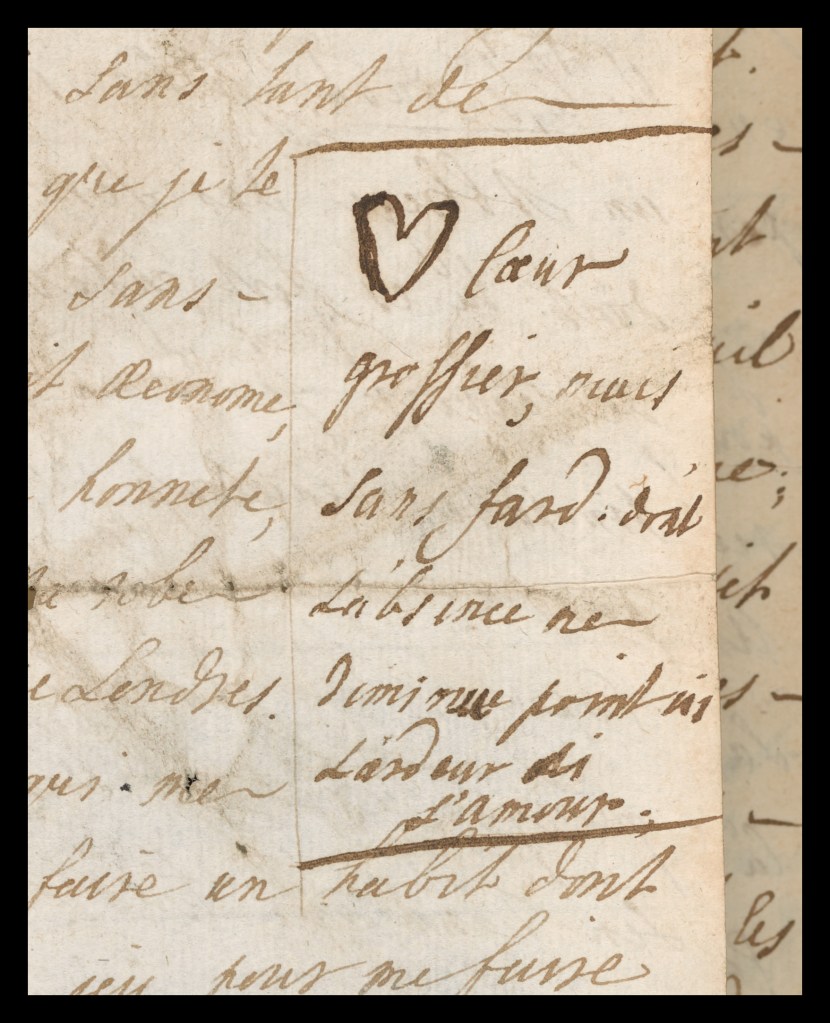 sans tant de
que je te
sans -
œconome,
honnete,
robe
Londres.
qui me
faire un habit dont
pour me faire
Cœur
grossier, mais
sans fard. dont
L'absence ne
diminue point ni
L'ardeur ni
L'amour.
les